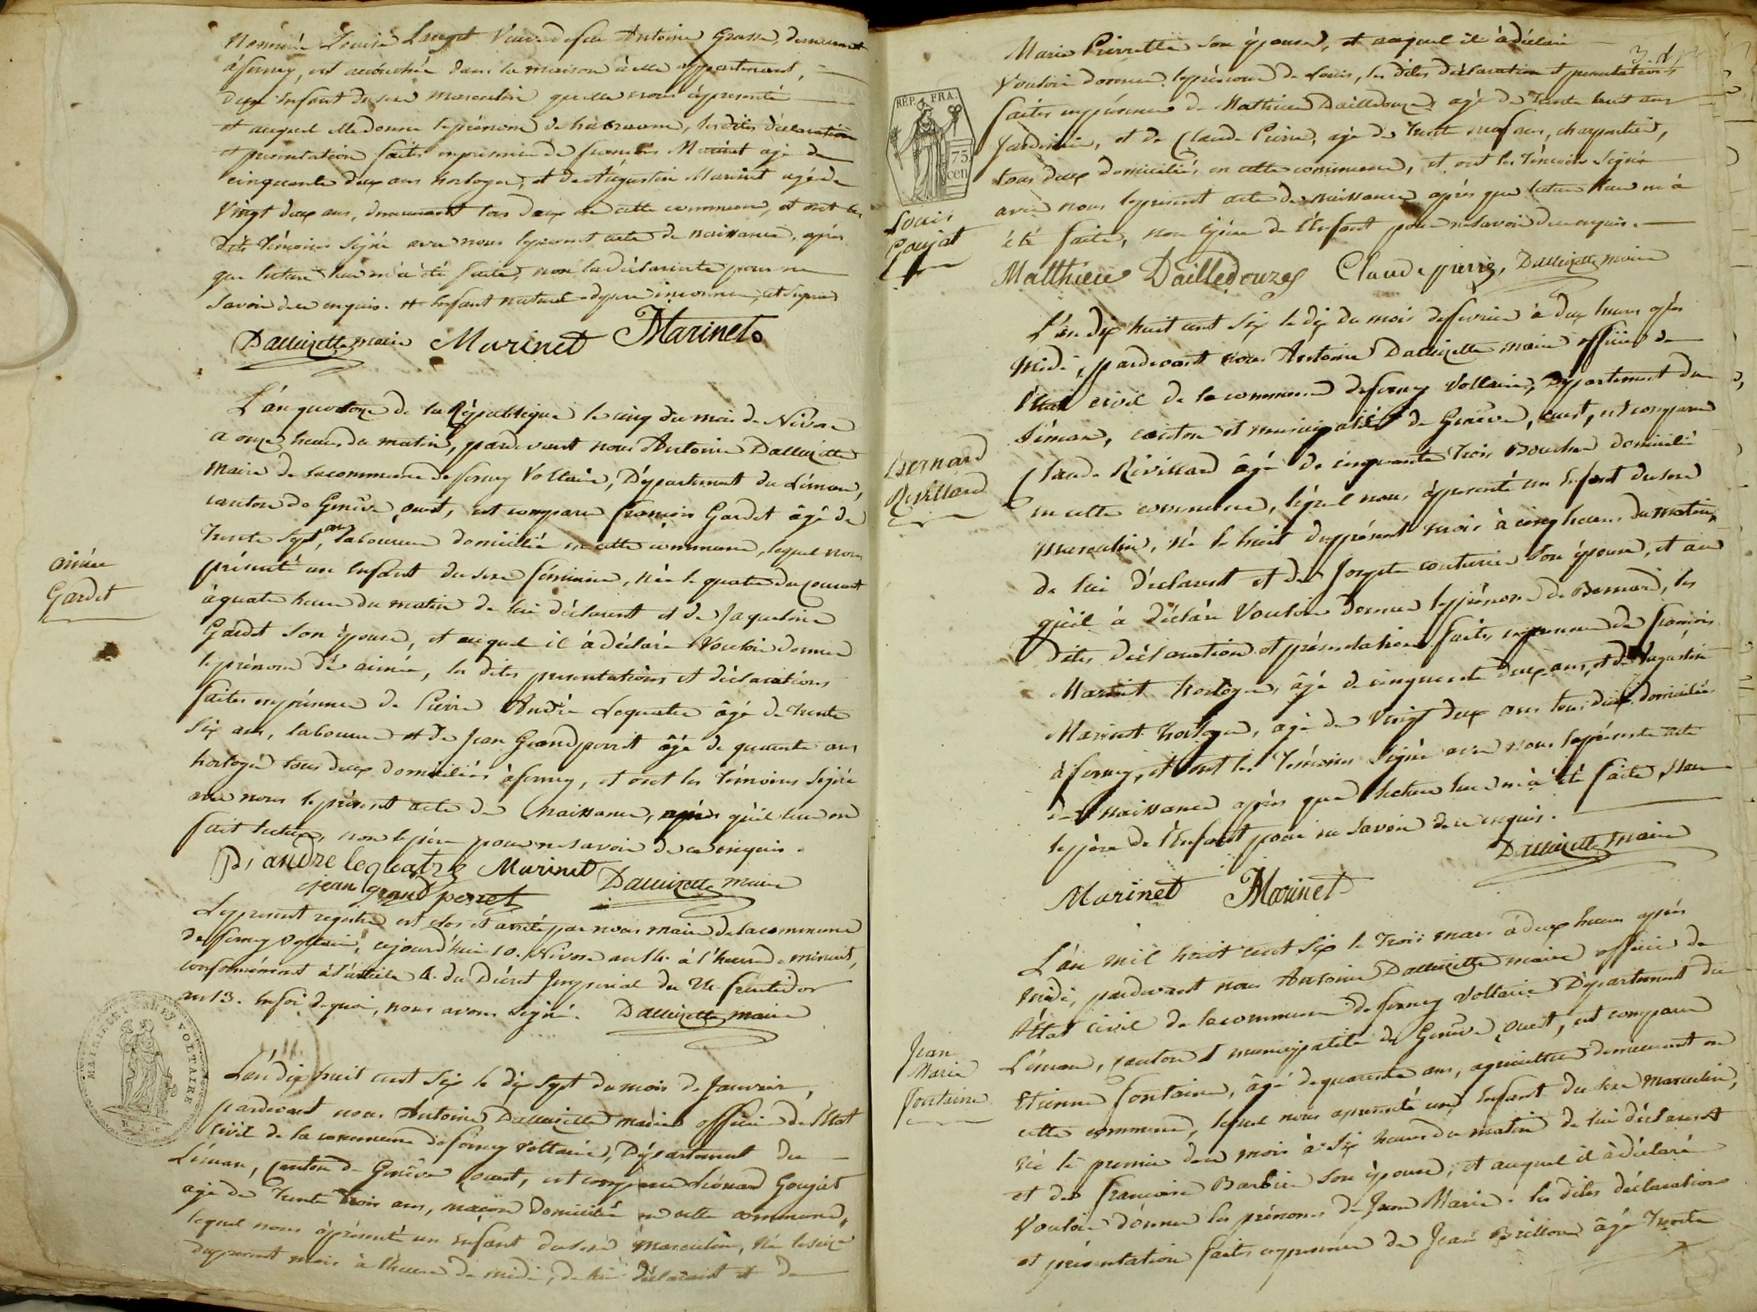 Nommée Louise veuve de feu Antoine Grasse, demeurant
à ferney, est accouchée dans la maison à elle appartenant,
d'un Enfant du sexe masculin qu'elle nous à présenté
et auquel elle donne le prénom de les dites déclaration
et présentation faites en présence de françois Marinet agé de
cinquante deux ans horloger, et de Augustin Marinet agé de
vingt deux ans, demeurants tous deux en cette commune, et ont les
dits témoins signé avec nous le présent acte de naissance, après
que lecture leur en a été faite, non la déclarante pour ne
savoir de ce enquis. Enfant naturel
Dallizette maire Marinet FMarinet
L'an quatorze de la République le cinq du mois de Nivose
à onze heures du matin, pardevant nous Antoine Dallizette
maire de la commune de ferney Voltaire, Département du Léman,
canton de Genêve ouest, est comparu françois Gardet âgé de
trente sept ans, laboureur domicilié en cette commune, lequel nous
présenté un Enfant du sexe féminin, née le quatre du courant
à quatre heures du matin de lui déclarant et de Jaqueline
Gardet son épouse, et auquel il à déclaré vouloir donner
le prénom de aimée, les dites présentations et déclarations
faites en présence de Pierre André Lequatre âgé de trente
six ans, laboureur et de Jean Grandperret âgé de quarante ans
horloger tous deux domiciliés à ferney, et ont les témoins signé
avec nous le présent acte de Naissance, après qu'il leur en
fait lecture, non le père pour ne savoir de ce enquis.
aimée
Gardet
Pi andre lequatre Marinet Dallizette maire
jean grand perret
Le present registre est clos et arrêté par nous maire de la commune
de ferney Voltaire, cejourd'hui 10. Nivose an 14. à l'heure de minuit,
conformément à l'article 4. du Décret Imperial du 24 fructidor
an 13. En foi de quoi, nous avons signé. Dallizette maire
MAIRIE DE FERNEY VOLTAIRE
L'an dix huit cent six le dix sept du mois de Janvier,
pardevant nous Antoine Dallizette maire officier de l'Etat
civil de la commune de ferney voltaire, Département du
Leman, Canton de Genêve Ouest, est comparu Léonard Goujat
agé de trente trois ans, maçon domicilié en cette commune,
lequel nous à présenté un Enfant du sexe masculin, né le seize
du present mois à l'heure de midi, de lui déclarant et de
Marie Pierrette son épouse, et auquel il à déclaré
vouloir donner le prénom de Louis, les dites déclaration et presentations
faites en présence de Mathieu Dailledouze, agé de trente huit ans
Jardinier, et de Claude Pierre, agé de trente neuf ans, charpentier,
tous deux domiciliés en cette commune, et ont les témoins signé
avec nous le présent acte de naissance après que lecture leur en à
été faite, non le père de l'Enfant pour ne savoir de ce enquis.
REP. FRA.
75
cen
Louis
Goujat
Matthieu Dailledouzes Claude pierre, Dallizette maire
L'an dix huit cent six le dix du mois de fevrier à deux heures après
Midi, pardevant nous Antoine Dallizette maire officier de
l'Etat civil de la commune de ferney Voltaire, Département du
Léman, canton et municipalité de Genêve, ouest, est comparu
Claude Révillard âgé de cinquante trois Boucher domicilié
en cette commune, lequel nous à présenté un Enfant du sexe
masculin, né le huit du présent mois à cinq heures du matin,
de lui déclarant et de Josepte couturier son épouse, et au
quel il à déclaré vouloir donner le prénom de Bernard, les
dites déclaration et présentations faites en présence de françois
Marinet horloger, âgé de cinquante deux ans, et de Augustin
Marinet horloger, agé de vingt deux ans tous deux domiciliés
à ferney, et ont les témoins signé avec nous le présente acte
de naissance après que lecture leur en à été faite, non
le père de l'Enfant pour ne savoir de ce enquis.
Bernard
Révillard
Dallizette maire
Marinet FMarinet
L'an mil huit cent six le trois mars à deux heures après
midi, pardevant nous Antoine Dallizette maire officier de
l'Etat civil de la commune de ferney Voltaire Département du
Léman, canton et municipalité de Genêve Ouest, est comparu
Etienne fontaine, âgé de quarante ans, agriculteur demeurant en
cette commune, lequel nous à présenté un Enfant du sexe masculin,
né le premier de ce mois à six heures du matin de lui déclarant
et de francoise Barbier son épouse, et auquel il à déclaré
vouloir donner les prénoms de Jean Marie. les dites déclaration
et présentation faites en présence de Jean Brillon âgé trente
Jean
Marie
Fontaine